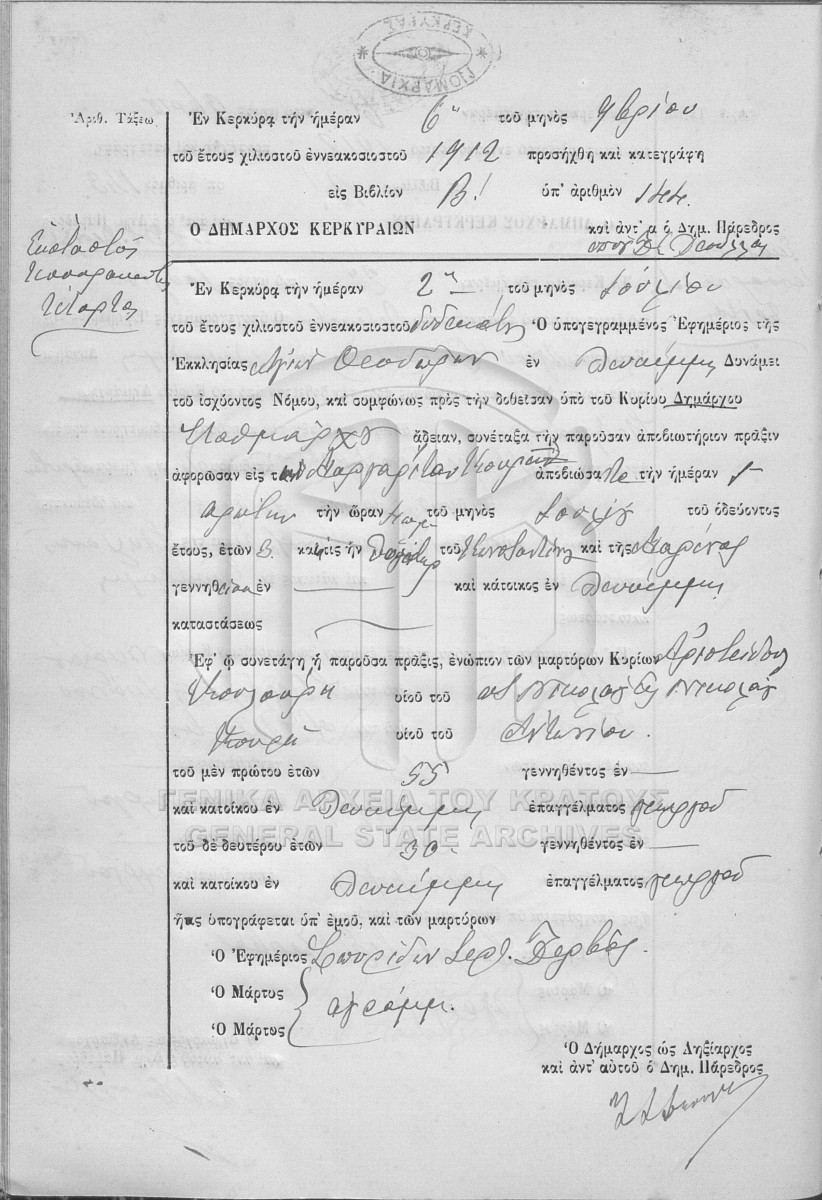 ΝΟΜΑΡΧΙΑ ΚΕΡΚΥΡΑΣ
Ἀριθ. Τάξεω
Ἐν Κερκύρᾳ τὴν ἡμέραν 6η τοῦ μηνὸς 9βρίου
τοῦ ἔτους χιλιοστοῦ ἐννεακοσιοστοῦ 1912 προσήχθη καὶ κατεγράφη
εἰς Βιβλίον Β! ὑπ' ἀριθμὸν 144
Ο ΔΗΜΑΡΧΟΣ ΚΕΡΚΥΡΑΙΩΝ καὶ ἀντ' α ὁ Δημ. Πάρεδρος
Ἑκατοστὸς
Τεσσαρακοστὸς
Τέταρτος
Ἐν Κερκύρᾳ τὴν ἡμέραν 2α τοῦ μηνὸς Ἰουλίου
τοῦ ἔτους χιλιοστοῦ ἐννεακοσιοστοῦ δωδεκάτου Ὁ ὑπογεγραμμένος Ἐφημέριος τῆς
Ἐκκλησίας Ἁγίων Θεοδώρων ἐν Λευκίμμῃ Δυνάμει
τοῦ ἰσχύοντος Νόμου, καὶ συμφώνως πρὸς τὴν δοθεῖσαν ὑπὸ τοῦ Κυρίου Δημάρχου
Σταθμάρχου ἄδειαν, συνέταξα τὴν παροῦσαν ἀποβιωτήριον πρᾶξιν
ἀφορῶσαν εἰς τὴν Μαργαρίταν Κουρῆ ἀποβιώσα τὴν ἡμέραν
πρώτην τὴν ὥραν τοῦ μηνὸς Ἰουλίου τοῦ ὁδεύοντος
ἔτους, ἐτῶν 3 καὶ τις ἦν θυγάτηρ τοῦ Κωνσταντίνου καὶ τῆς Μαρίνας
γεννηθεῖσα ἐν καὶ κάτοικος ἐν Λευκίμμῃ
καταστάσεως
Ἐφ' ᾧ συνετάγη ἡ παροῦσα πρᾶξις, ἐνώπιον τῶν μαρτύρων Κυρίων Ἀριστείδου
Κουλούρη υἱοῦ τοῦ Νικολάου & Νικολάου
Κουρῆ υἱοῦ τοῦ Ἀντωνίου.
τοῦ μὲν πρώτου ἐτῶν 55 γεννηθέντος ἐν
καὶ κατοίκου ἐν Λευκίμμῃ ἐπαγγέλματος γεωργοῦ
ΓΕΝΙΚΑ ΑΡΧΕΙΑ ΤΟΥ ΚΡΑΤΟΥΣ
GENERAL STATE ARCHIVES
τοῦ δὲ δευτέρου ἐτῶν 30 γεννηθέντος ἐν
καὶ κατοίκου ἐν Λευκίμμῃ ἐπαγγέλματος γεωργοῦ
ἥτις ὑπογράφεται ὑπ' ἐμοῦ, καὶ τῶν μαρτύρων
Ὁ Ἐφημέριος Σπυρίδων Ἱερ.
Ὁ Μάρτυς
ἀγράμμ.
Ὁ Μάρτυς
Ὁ Δήμαρχος ὡς Ληξίαρχος
καὶ ἀντ' αὐτοῦ ὁ Δημ. Πάρεδρος